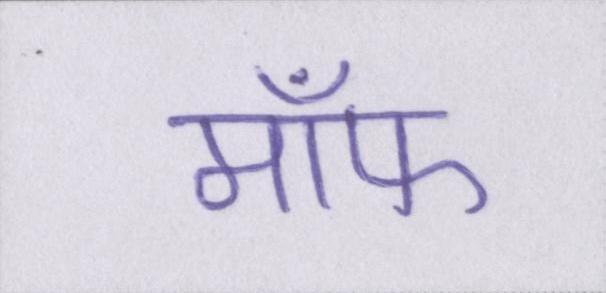 माँफ